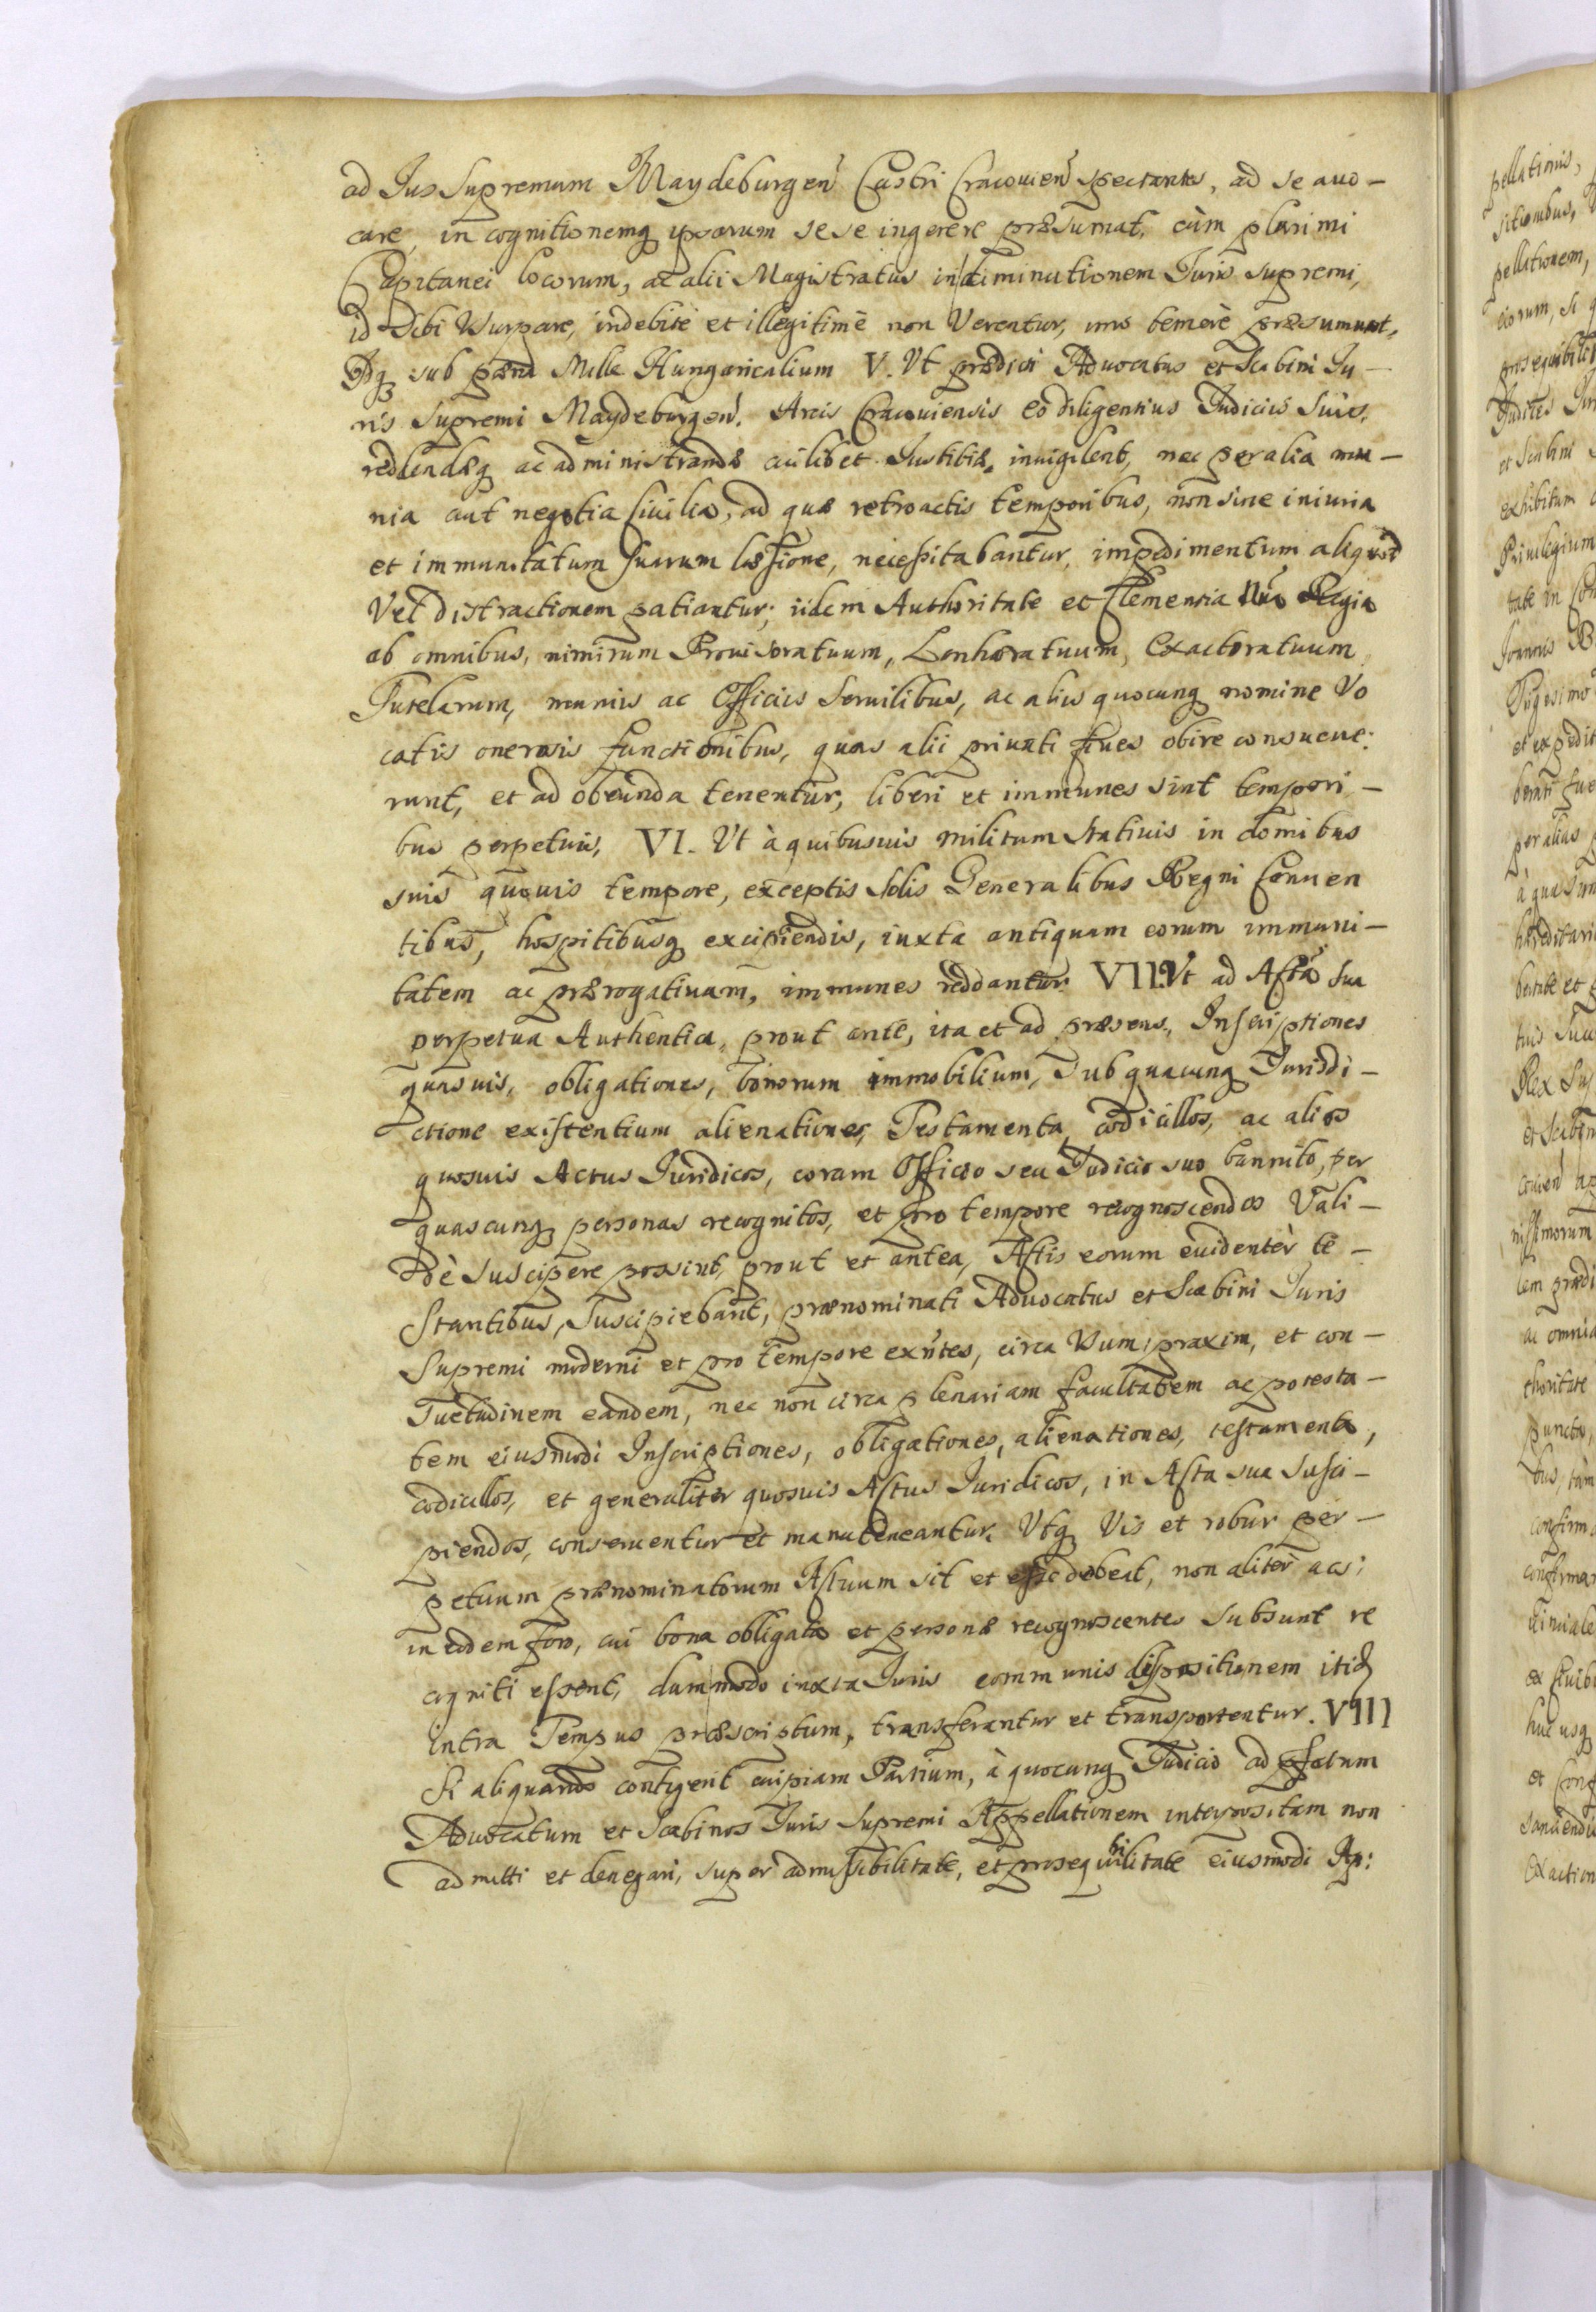 ad Jus Supremum Maydeburgen Castri Cracouien spectantes, ad se auo-
care, in cognitionemq ipsarum sese ingerere præsumat, cùm plurimi
Capitanei locorum, ac alii Magistratus in diminutionem Juris supremi,
id Sibi Usurpare, indebitè et illegitimè non Verentur, imo temerè præsumunt,
Idq sub pæna Mille Hungaricalium V. Vt prædicti Advocatus et Scabini Ju-
ris Supremi Maydeburgen. Arcis Cracouiensis eò diligentius Judiciis Suis,
reddendæq ac administrandæ cuilibet Justitiæ, inuigilent, nec per alia mu-
nia aut negotia Ciuilia, ad quæ retroactis temporibus, non sine iniuria
et immunitatum suarum læsione, necessitabantur, impedimentum aliquod
Vel distractionem patiantur; iidem Authoritate et Clementia Nra Regia
ab omnibus, nimirum Prouisoratuum, Lonheratuum, Exactoratuum
Tutelarum, muniis ac Officiis Seruilibus, ac aliis quocunq nomine Vo
catis onerosis functionibus, quas alii priuati Ciues obire consueue:
runt, et ad obeunda tenentur, liberi et immunes sint tempori-
bus perpetuis, VI. Vt à quibusuis militum Statiuis in domibus
suis quouis tempore, exceptis Solis Generalibus Regni Conuen
tibus, hospitibusq excipiendis, iuxta antiquam eorum immuni-
tatem ac prærogatiuam, immunes reddantur. VII. Vt ad Acta sua
perpetua Authentica, prout ante, ita et ad præsens, Inscriptiones
quasuis, obligationes, bonorum immobilium, Sub quacunq Jurisdi-
ctione existentium alienationes, Testamenta, codicillos, ac alios
quosuis Actus Juridicos, coram Officio seu Judicio suo bannito, per
quascunq personas recognitos, et pro tempore recognoscendos Vali-
dè Suscipere possint, prout et antea, Actis eorum euidentèr te-
stantibus, Suscipiebant, prænominati Advocatus et Scabini Juris
Supremi moderni et pro tempore exntes, circa Usum, praxim, et con-
Suetudinem eandem, nec non circa plenariam facultatem ac potesta-
tem eiusmodi Inscriptiones, obligationes, alienationes, testamenta,
codicillos, et generalitèr quosuis Actus Juridicos, in Acta sua Susci-
piendos, conseruentur et manuteneantur. Vtq Vis et robur per-
petuum prænominatorum Actuum sit et esse debeat, non alitèr acsi
in eodem foro, cui bona obligata et personæ recognoscentes Subsunt re
cogniti essent, dummodo iuxta Juris communis dispositionem itid
intra Tempus præscriptum, transferantur et transportentur. VIII
Si aliquando contigerit cuipiam Partium, à quocunq Judicio ad pfatum
Advocatum et Scabinos Juris Supremi Appellationem interpositam non
admitti et denegari, super admissibilitate, et prosequibilitate eiusmodi Ap: